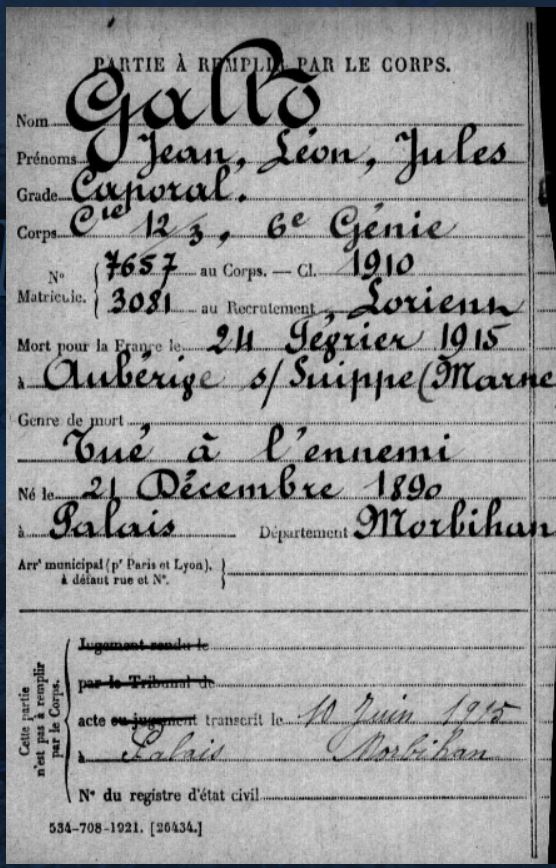 PARTIE À REMPLIR PAR LE CORPS.
Nom Gallo
Prénoms Jean, Léon, Jules
Grade Caporal.
Corps Cie 12/3, 6e Génie
N° Matricule. { 7657 au Corps. — Cl. 1910
3081 au Recrutement Lorient
Mort pour la France le 24 Février 1915
à Aubérive s/Suippe (Marne
Genre de mort
Tué à l'ennemi
Né le 21 Décembre 1890
à Palais Département Morbihan
Arrt municipal (pr Paris et Lyon),
à défaut rue et N°.
Cette partie n'est pas à remplir par le Corps.
Jugement rendu le
par le Tribunal de
acte ou jugement transcrit le 10 Juin 1915
à Palais Morbihan
N° du registre d'état civil
534-708-1921. [26434.]